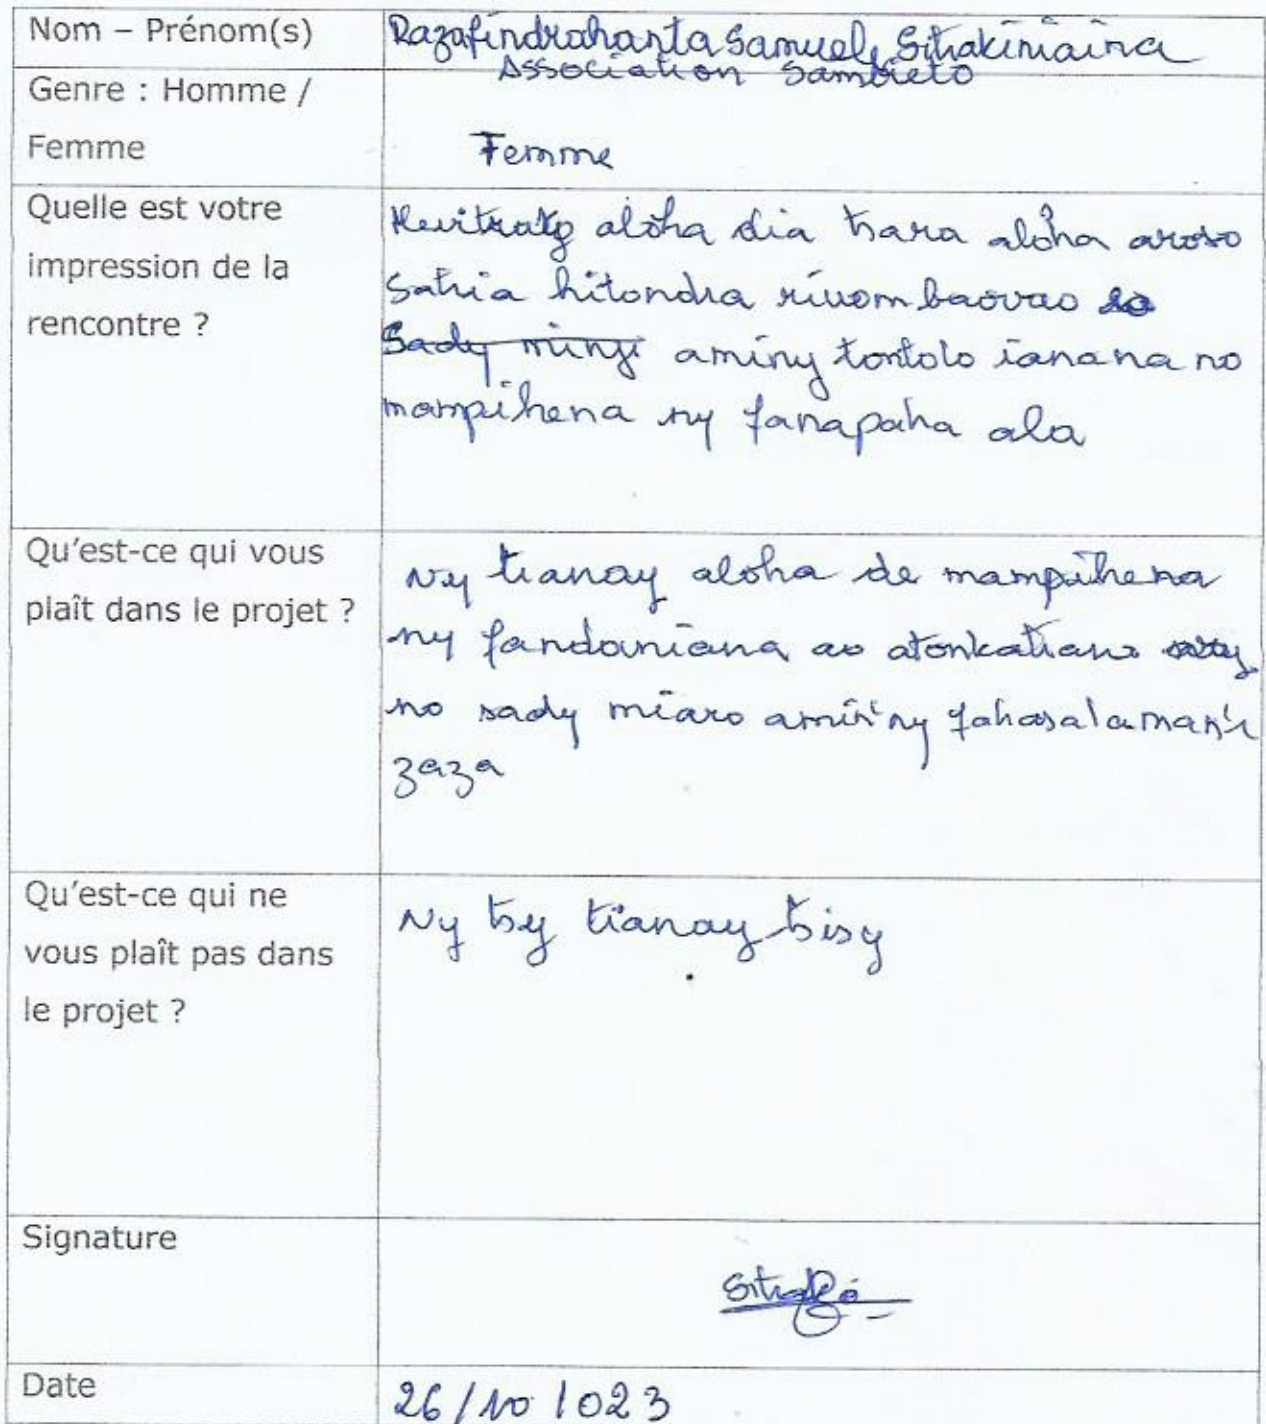 Nom – Prénom(s)
Razafindrahanta Samuel Sitrakiniaina
Association Sambieto
Genre : Homme /
Femme
Femme
Quelle est votre
impression de la
rencontre ?
Hevitrako aloha dia tsara aloha
satria hitondra rivom baovao
Sady aminy tontolo ianana no
mampihena ny fanapaha ala
Qu'est-ce qui vous
plaît dans le projet ?
Ny tianay aloha de mampihena
ny fandaniana ao atonkatiano
no sady miaro amin'ny fahasalaman'i
zaza
Qu'est-ce qui ne
vous plaît pas dans
le projet ?
Ny tsy tianay tsisy
Signature
Date
26/10/023